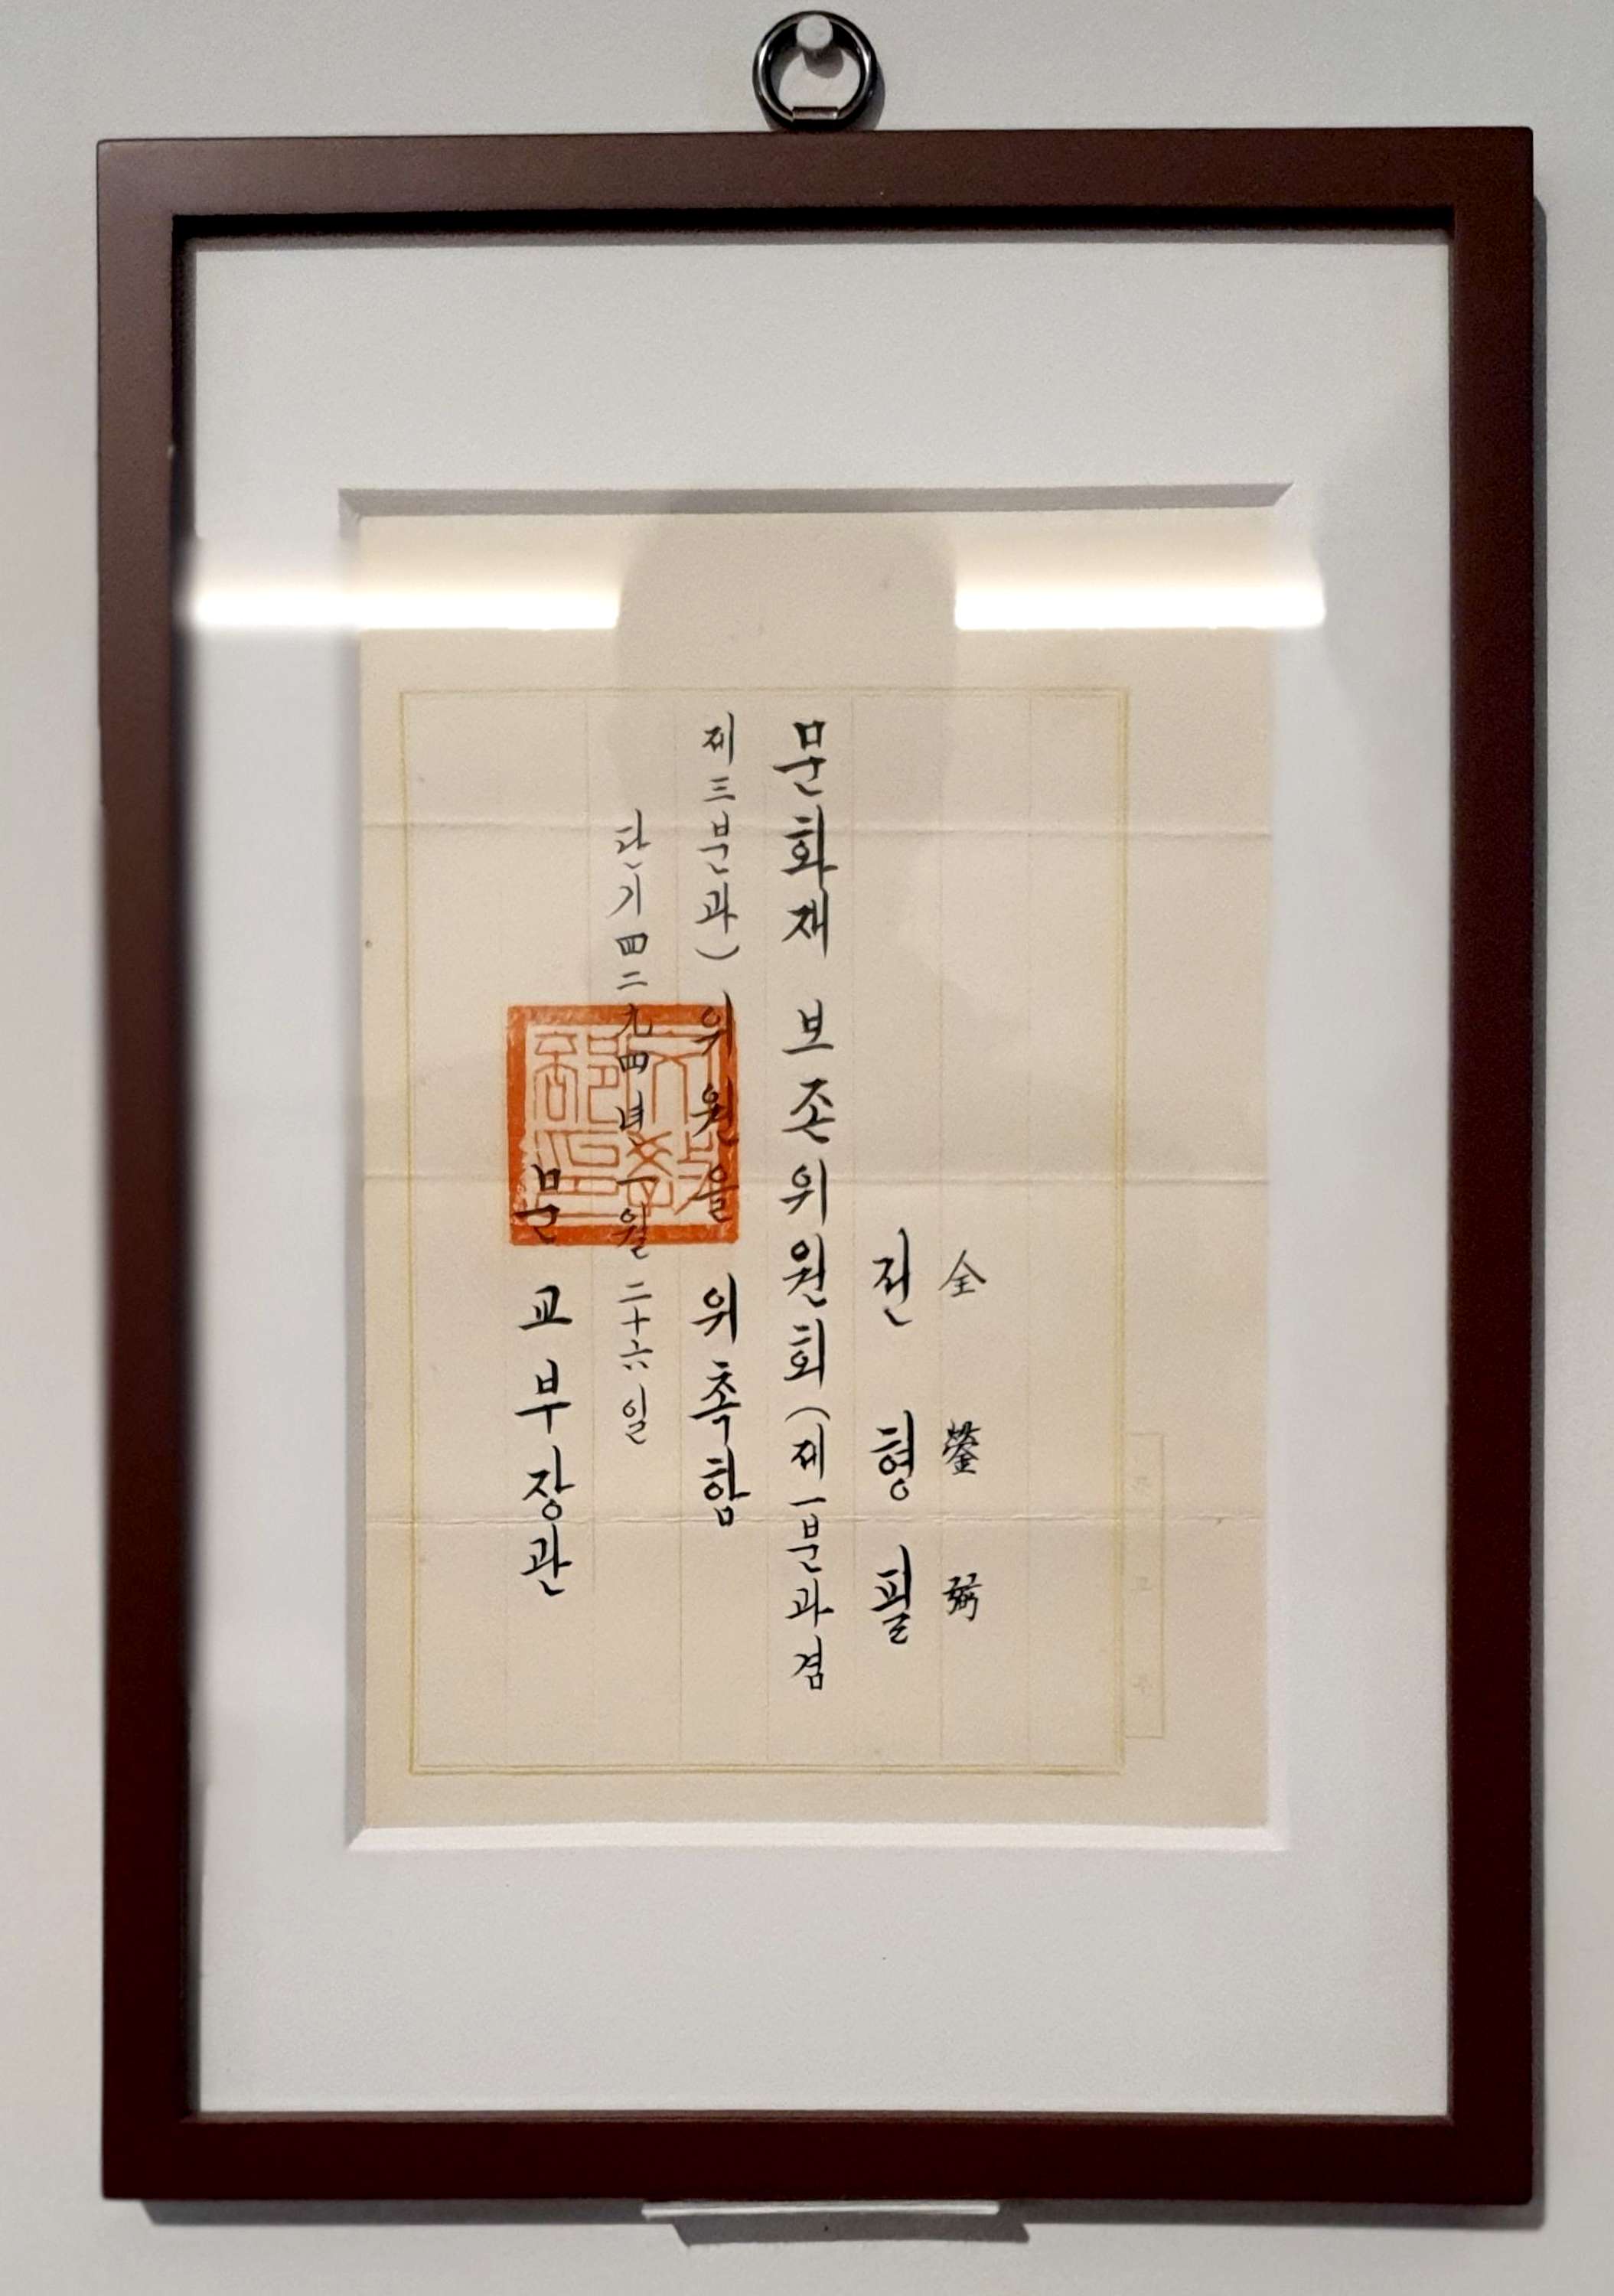 全鎣弼
전형필
문화재 보존위원회(제一분과겸
제三분과) 위원을 위촉함
단기四二九四년一월二十六일
문교부장관
文敎部印